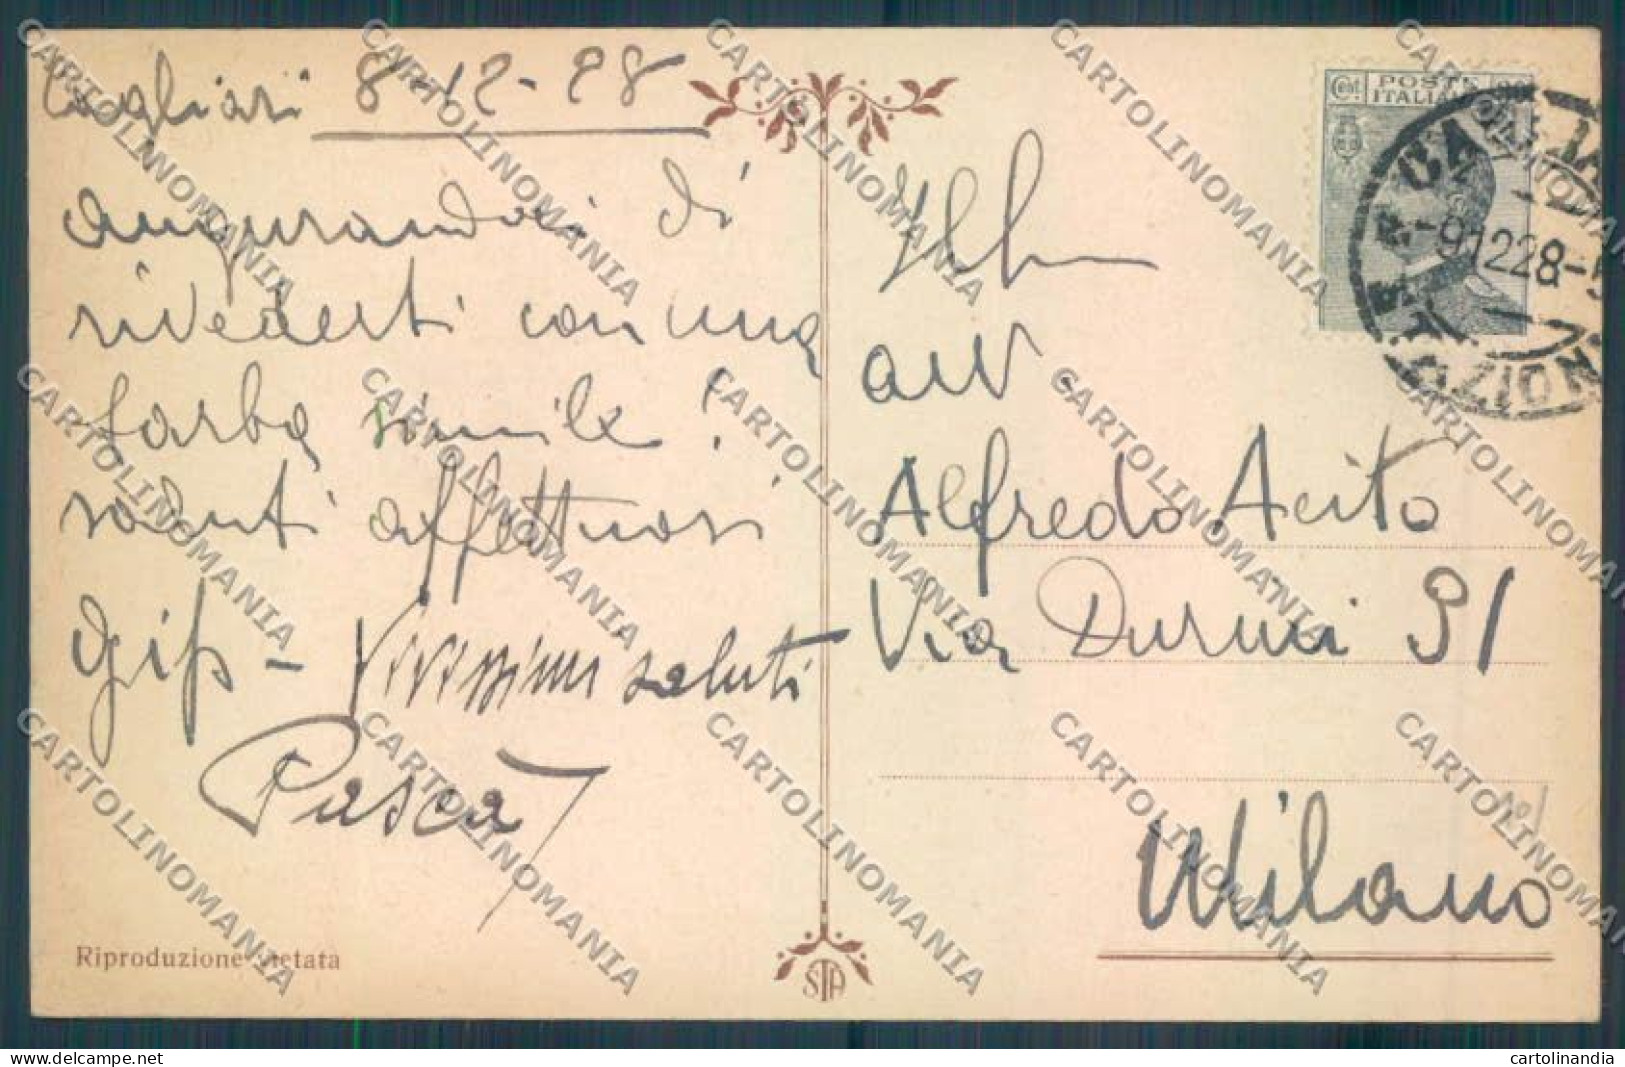 Cagliari 8-12-28
augurandoci di
rivederti con una
barba simile!
saluti affettuosi
Vivissimi saluti
Pasca
Riproduzione vietata
STA
Cent. POSTE
ITALIANE
CAGLIARI
9.12.28
avv.
Alfredo Acito
Via Durini 31
Milano
CARTOLINOMANIA
delcampe.net
cartolinandia